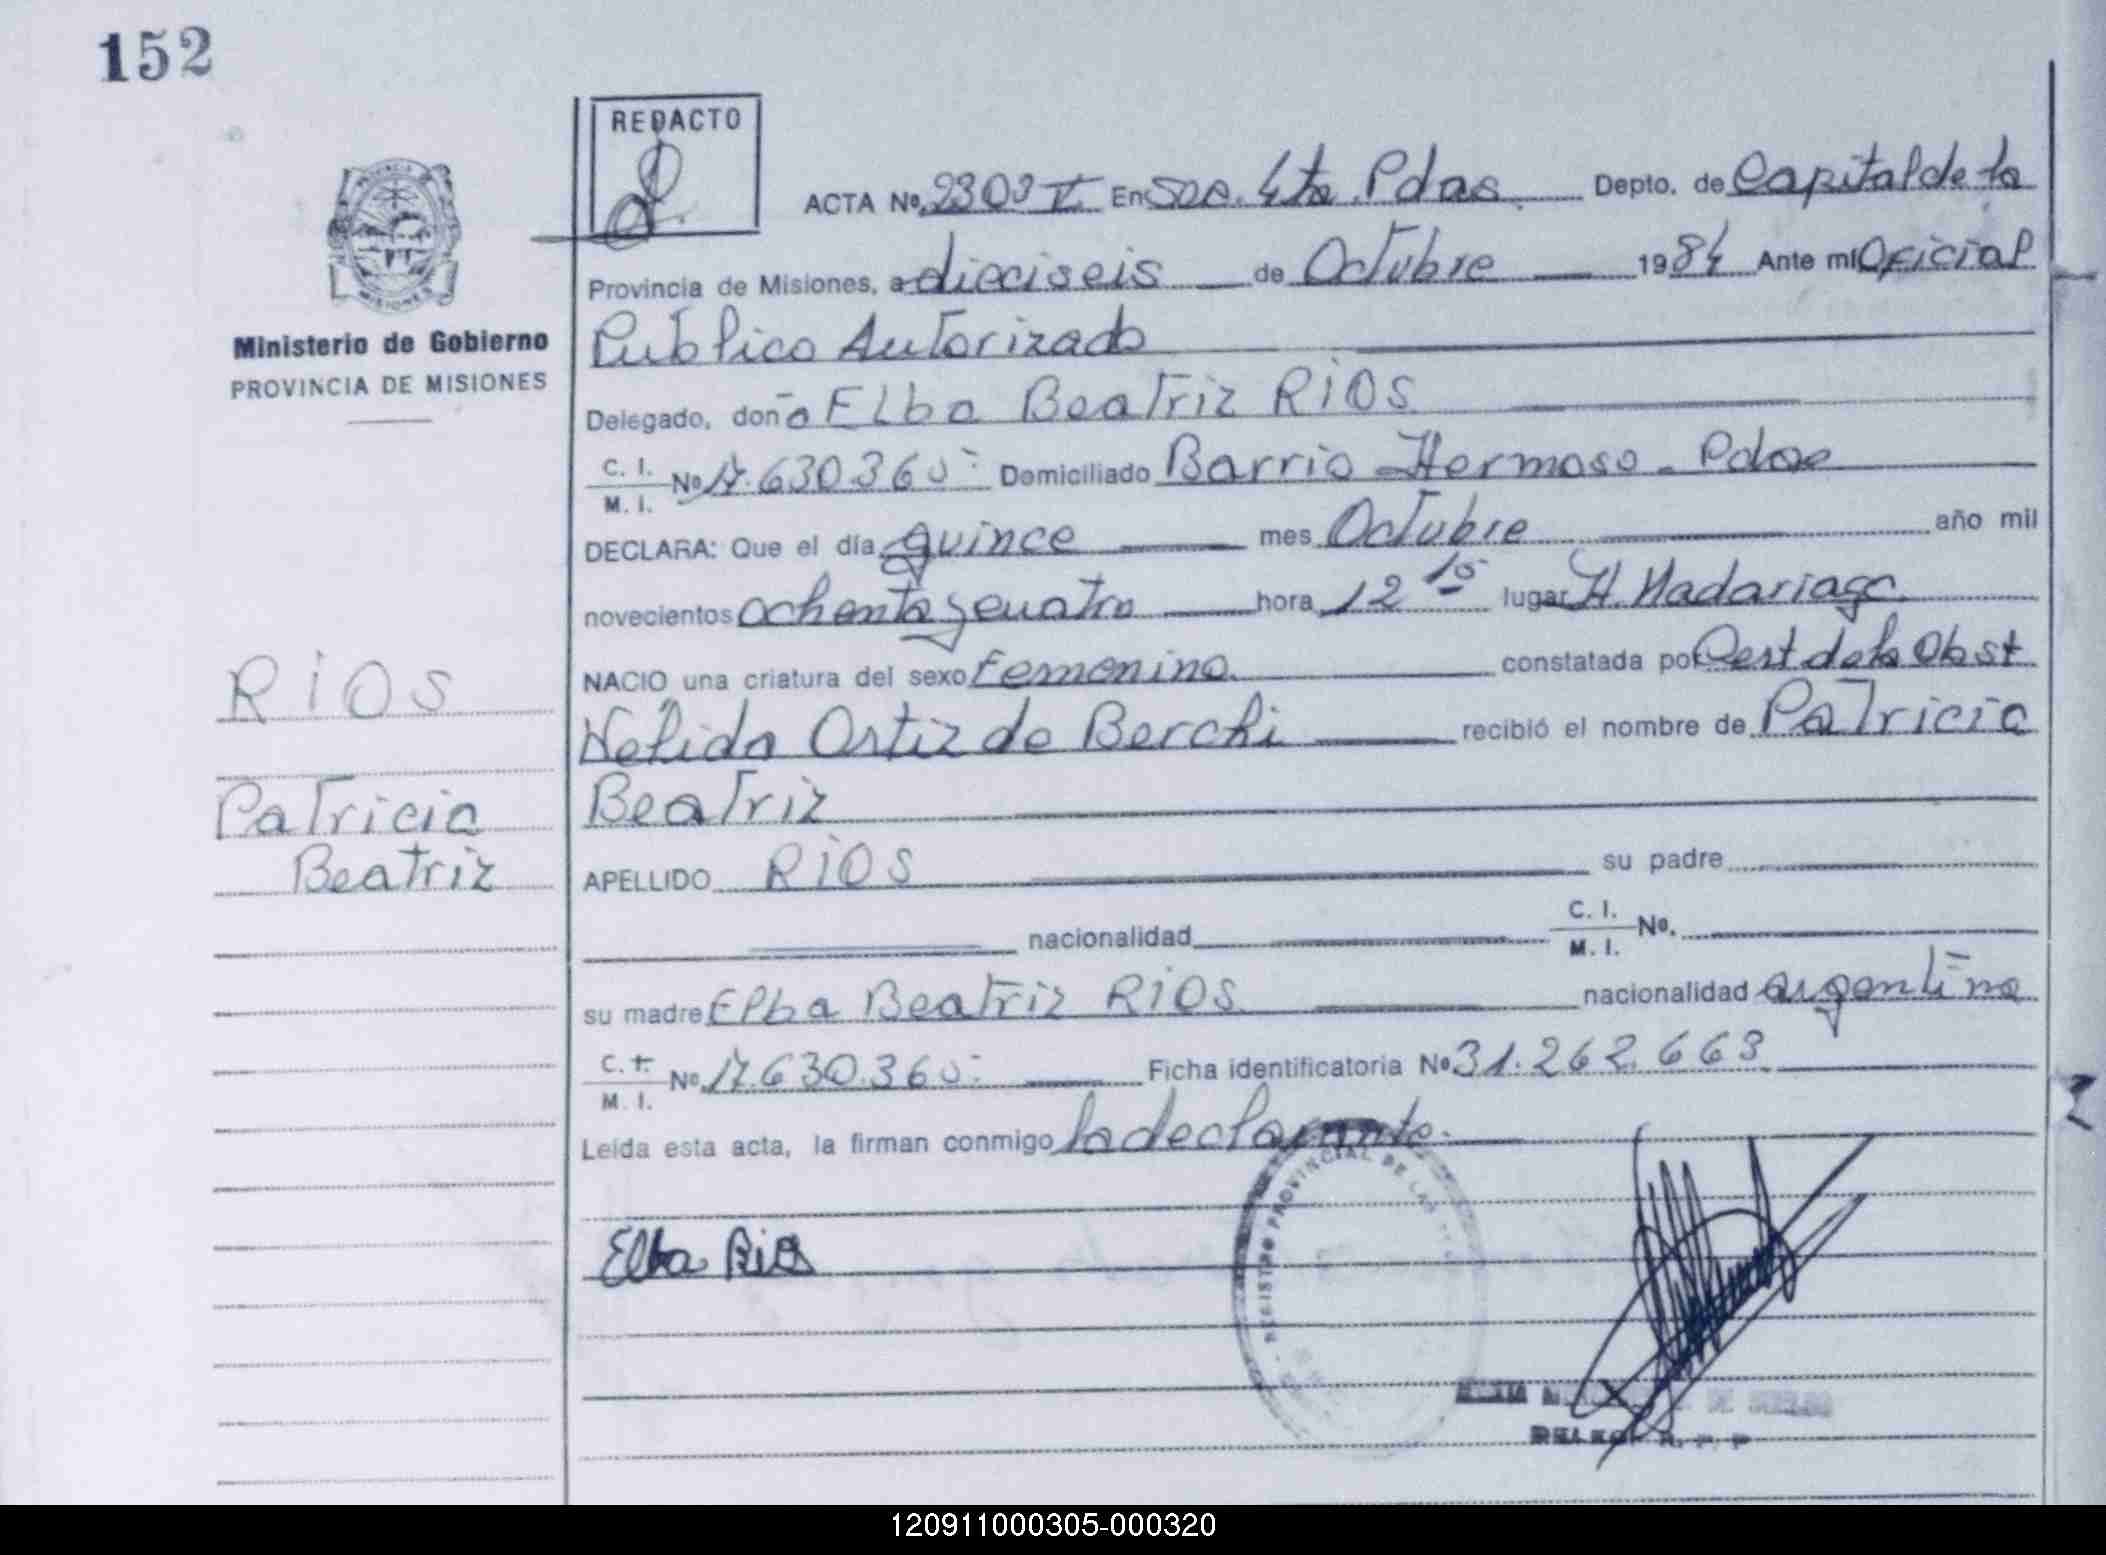 152
REDACTO
ACTA Nº 2303 V En Sec. 4ta. Pdas. Depto. de Capital de la
Provincia de Misiones, a dieciseis de Octubre 1984 Ante mi Oficial
Ministerio de Gobierno
PROVINCIA DE MISIONES
Publico Autorizado
Delegado, doña Elba Beatriz RIOS
C. I.
M. I. Nº 17.630.360 Domiciliado Barrio Hermoso - Pdas
DECLARA: Que el día quince mes Octubre año mil
novecientos ochenta y cuatro hora 12 15 lugar H. Madariaga
NACIO una criatura del sexo Femenino. constatada por Cert de la Obst
RIOS
Nelida Ortiz de Berchi recibió el nombre de Patricia
Patricia
Beatriz
Beatriz
APELLIDO RIOS su padre
nacionalidad C. I.
M. I. No.
su madre Elba Beatriz RIOS. nacionalidad argentina
C. I.
M. I. Nº 17.630.360 Ficha identificatoria Nº 31.262.663
Leida esta acta, la firman conmigo la declarante.
REGISTRO PROVINCIAL DE LAS
Elba Rios
120911000305-000320